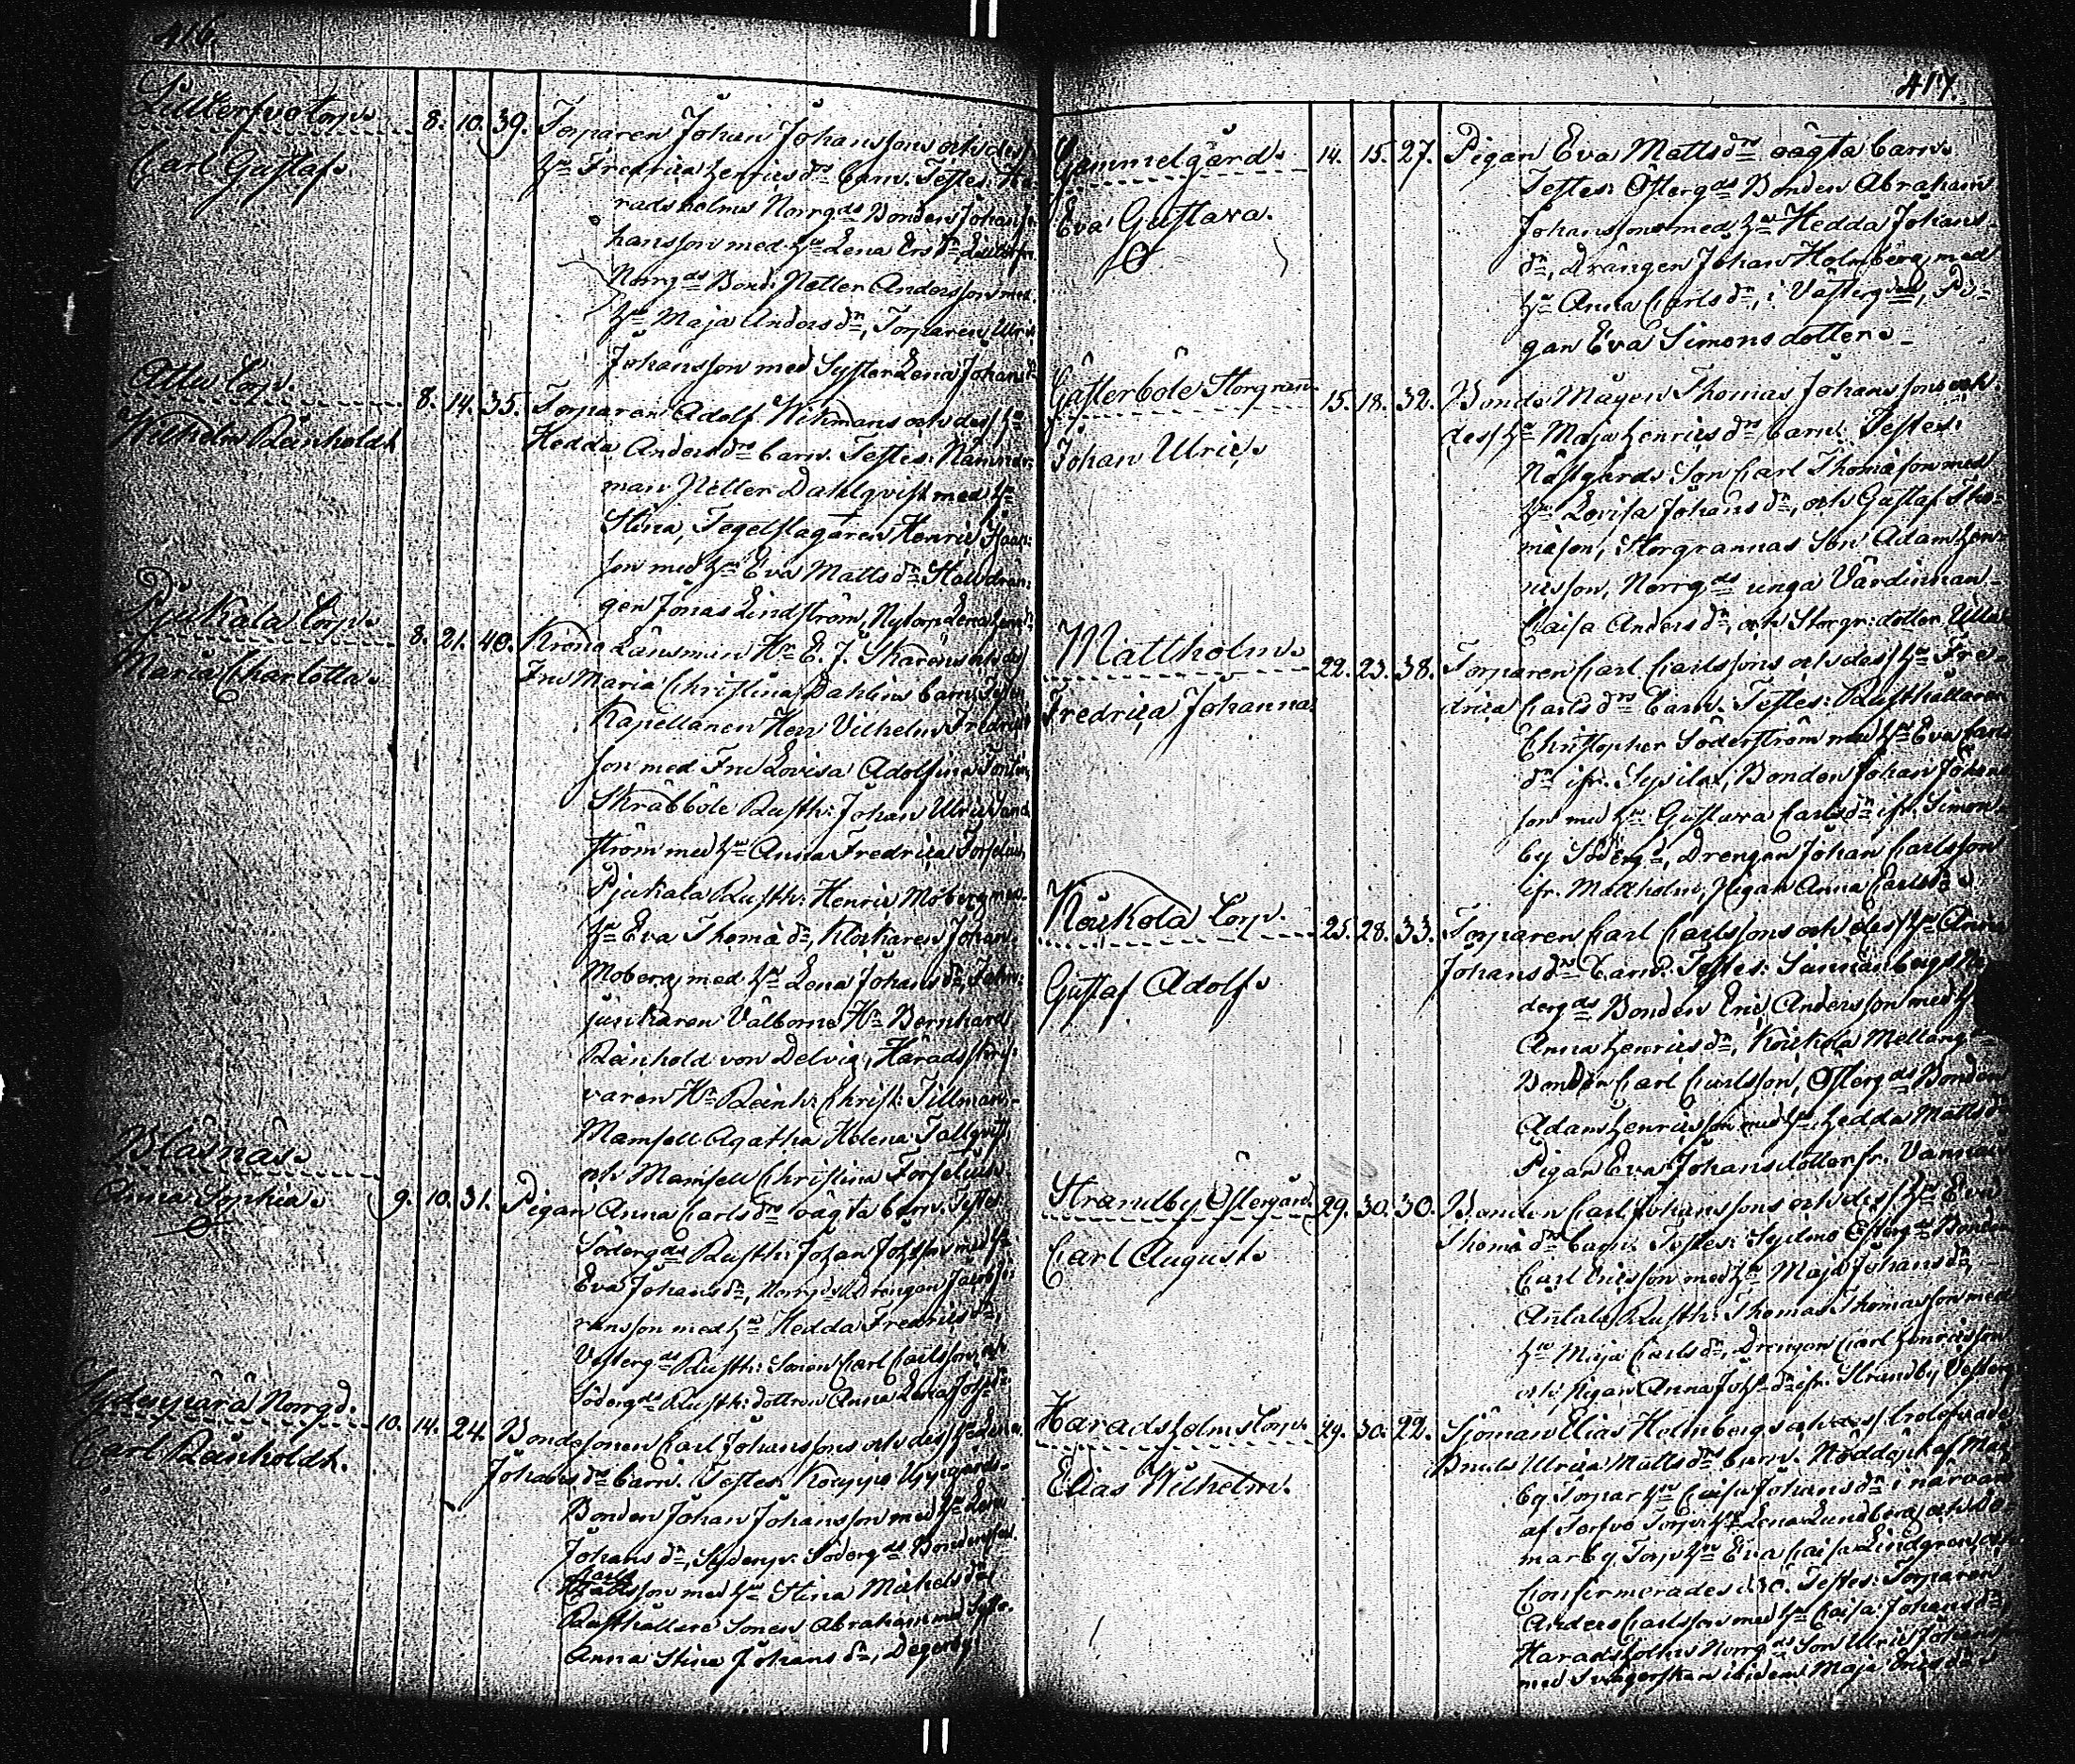 416.
Lillterfvo torp.
Carl Gustaf.
8. 10. 39. Torparen Johan Johanssons och dess
hu Fredrica Henricsdrs barn. Testes: Ha-
radsholms Norrgds Bonden Johan Jo-
hansson med hu Lena Ersdr,
Norrgds Bond. Petter Andersson med
hu Maja Andersdr, Torparen Ulric
Johansson med Syster Lena Johansdr
Attu torp.
Wilhelm Reinholdt
8. 14. 35. Torparen Adolf Wikmans och dess hu
Hedda Andersdrs barn. Testes: Nämnde-
man Petter Dahlqvist med hu
Stina, Tegelslagaren Henric Isaac-
son med hu Eva Mattsdr, Stalldrän-
gen Jonas Lindström, Nytorp Lena
Pjukala torp.
Maria Charlotta.
8. 21. 40. Krono Länsman Hr E. J. Skaréns och dess
Fru Maria Christina Dahlins barn. Testes
Kapellanen Herr Vilhelm Fredrics-
son med Fru Lovisa Adolfina
Skräbböle Rusth: Johan Ulric Sand-
ström med hu Anna Fredrica Forselius,
Pjukala Rusth: Henric Moberg med
hu Eva Thomädr, Klockaren Johan
Moberg med hu Lena Johansdr,
junkaren Välborne Hr Bernhard
Reinhold von Delvig, Häradsskri-
varen Hr Reinh: Christ: Tillman,
Mamsell Agatha Helena Tallqvist,
och Mamsell Christina Forselius.
Bläsnäs.
Anna Sophia.
9. 10. 31. Pigan Anna Carlsdrs oägta barn. Testes
Södergds Rusth: Johan Johsson med hu
Eva Johansdr, Norrgds Drengen Jacob Jö-
ransson med hu Hedda Fredricsdr,
Vestergds Rusth: Sonen Carl Carlsson, och
Södergds Rusth: dottren Anna Lena Johsdr
Sydenperä Norrgd.
Carl Reinholdt.
10. 14. 24. Bondesonen Carl Johanssons och dess hu Lena
Johansdrs barn. Testes: Koupps Nygårds
Bonden Johan Johansson med hu Lena
Johansdr, Sydenp: Södergds Bondeson
Carls
Mattsson med hu Stina Michelsdr
Rusthållare Sonen Abraham med Syster
Anna Stina Johansdr, Degerby
417.
Gammelgård.
Eva Gustava.
14. 15. 27. Pigan Eva Mattsdrs oägta barn.
Testes: Östergds Bonden Abraham
Johansson med hu Hedda Johans-
dr, Drängen Johan Holmberg med
hu Anna Carlsdr, i Västergård, Pi-
gan Eva Simonsdotter.
Gästerböle Storgrann
Johan Ulric.
15. 18. 32. Bonde Mågen Thomas Johanssons och
dess hu Maja Henricsdrs barn. Testes:
Nästgårds Son Carl Thomäson med
hu Lovisa Johansdr, och Gustaf Tho-
mäson, Storgrannas Son Adam Hen-
ricsson, Norrgds unga Värdinnan
Caisa Andersdr, och Storgr: dotter Ulla
Mattholm.
Fredrica Johanna.
22. 23. 38. Torparen Carl Carlssons och dess hu Fre-
drica Carlsdrs Barn. Testes: Rusthållaren
Christopher Söderström med hu Eva Carls
dr ifr. Sysilax, Bonden Johan Johans-
son med hu Gustava Carlsdr ifr. Simon-
by Södergd, Drengen Johan Carlsson
ifr. Mattholm, Pigan Anna Carlsdr.
Koukola torp.
Gustaf Adolf.
25. 28. 33. Torparen Carl Carlssons och dess hu Anna
Johansdrs Barn. Testes:
dergds Bonden Eric Andersson med hu
Anna Henricsdr, Koukola Mellang.
Bonden Carl Carlsson, Östergds Bonden
Adam Henricsson med hu Hedda Mattsdr
Pigan Eva Johansdotter fr. Vannais
Strandby Östergård.
Carl August.
29. 30. 30. Bonden Carl Johanssons och dess hu Eva
Thomädrs barn. Testes: Sydmo Östergds Bonden
Carl Ericsson med hu Maja Johansdr,
Antala Rusth: Thomas Thomasson med
hu Maja Carlsdr, Drengen Carl Henricsson
och Pigan Anna Johsdr ifr. Strandby Vesterg
Haradsholms torp.
Elias Wilhelm.
29. 30. 22. Sjöman Elias Holmbergs och dess
Ulrica Mattsdrs barn. Nöddöpt af Matt-
by Torpar hu Caisa Johansdr i närvaro
af Torfvo Torp: hu Lena Lundberg och Do-
marby Torp hu Eva Caisa Lindgren, och
Confirmerades d. 30. Testes: Torparen
Anders Carlsson med hu Caisa Johansdr,
Haradsholms Norrgds Son Ulric Johansson
med Svägerskan ibidem Maja Ericsdr.